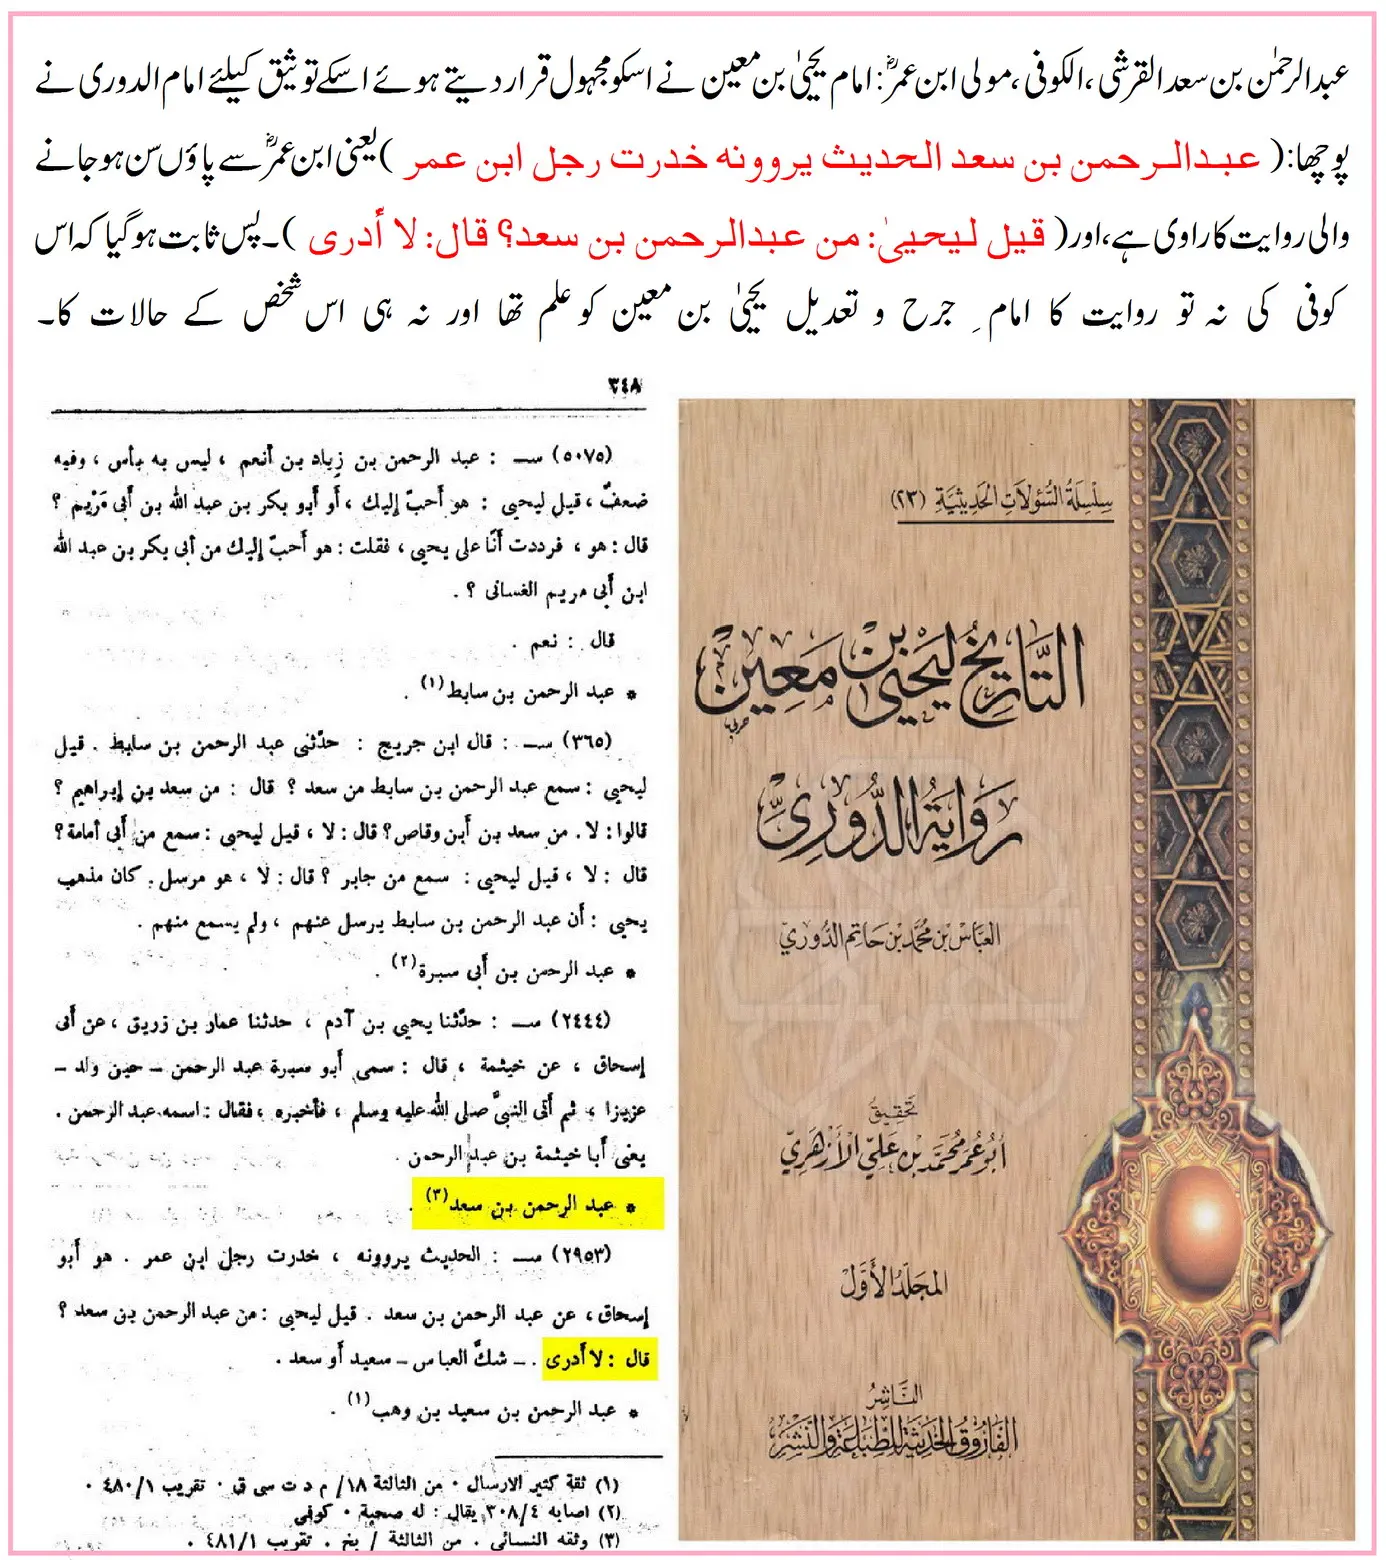 عبدالرحمٰن بن سعد القرشی، الکوفی، مولی ابن عمرؓ: امام یحییٰ بن معین نے اسکو مجہول قرار دیتے ہوئے اسکے توثیق کیلئے امام الدوری نے
پوچھا: ( عبدالرحمن بن سعد الحدیث یروونه خدرت رجل ابن عمر ) یعنی ابن عمرؓ سے پاؤں سن ہوجانے
والی روایت کا راوی ہے، اور ( قیل لیحییٰ: من عبدالرحمن بن سعد؟ قال: لا أدری )۔ پس ثابت ہوگیا کہ اس
کوفی کی نہ تو روایت کا امامِ جرح و تعدیل یحییٰ بن معین کو علم تھا اور نہ ہی اس شخص کے حالات کا۔
٣٤٨
(٥٠٧٥) ســ : عبد الرحمن بن زياد بن أنعم ، ليس به بأس ، وفيه
ضعفٌ ، قيل ليحيى : هو أحبّ إليك ، أو أبو بكر بن عبد الله بن أبى مَرْيم ؟
قال : هو ، فرددت أنّا على يحيى ، فقلت : هو أحبّ إليك من أبى بكر بن عبد الله
ابن أبى مريم الغسانى ؟ .
قال : نعم .
* عبد الرحمن بن سابط(١) .
(٣٦٥) ســ : قال ابن جريج : حدّثنى عبد الرحمن بن سابط . قيل
ليحيى : سمع عبد الرحمن بن سابط من سعد ؟ قال : من سعد بن إبراهيم ؟
قالوا : لا . من سعد بن أبن وقاص ؟ قال : لا ، قيل ليحيى : سمع من أبى أمامة ؟
قال : لا ، قيل ليحيى : سمع من جابر ؟ قال : لا ، هو مرسل . كان مذهب
يحيى : أن عبد الرحمن بن سابط يرسل عنهم ، ولم يسمع منهم .
* عبد الرحمن بن أبى سبرة(٢) .
(٢٤٤٤) ســ : حدّثنا يحيى بن آدم ، حدثنا عمار بن زريق ، عن أبى
إسحاق ، عن خيثمة ، قال : سمى أبو سبرة عبد الرحمن – حين ولد –
عزيزا ، ثم أتى النبىّ صلى الله عليه وسلم ، فأخبره ، فقال : اسمه عبد الرحمن .
يعنى أبا خيثمة بن عبد الرحمن .
* عبد الرحمن بن سعد(٣) .
(٢٩٥٣) ســ : الحديث يروونه ، خدرت رجل ابن عمر . هو أبو
إسحاق ، عن عبد الرحمن بن سعد . قيل ليحيى : من عبد الرحمن بن سعد ؟
قال : لا أدرى . – شكّ العباس – سعيد أو سعد .
* عبد الرحمن بن سعيد بن وهب(١) .
(١) ثقة كثير الارسال . من الثالثة ١٨/ م د ت سى ق . تقريب ٤٨٠/١ .
(٢) اصابه ٣٠٨/٤ يقال : له صحبة . كوفى
(٣) وثقه النسائى . من الثالثة / بخ . تقريب ٤٨١/١ .
سلسلة السؤلات الحديثية (٢٣)
التّاريخ ليحيى بن معين
رواية الدُّوري
العبّاس بن محمّد بن حاتم الدّوري
تحقيق
أبو عمر محمّد بن علي الأزهري
المجلّد الأوّل
النّاشر
الفاروق الحديثة للطباعة والنّشر